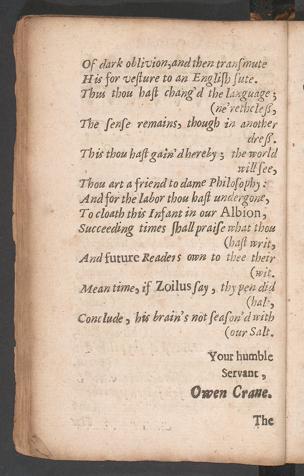 Of dark oblivion, and then transmute
His for vesture to an English sute.
Thus thou hast chang'd the language;
(ne'retheless,
The sense remains, though in another
dress.
This thou hast gain'd hereby; the world
will see,
Thou art a friend to dame Philosophy:
And for the labor thou hast undergone,
To cloath this Infant in our Albion,
Succeeding times shall praise what thou
(hast writ,
And future Readers own to thee their
(wit.
Mean time, if Zoilus say, thy pen did
(halt,
Conclude, his brain's not season'd with
(our Salt.
Your humble
Servant,
Owen Crane.
The